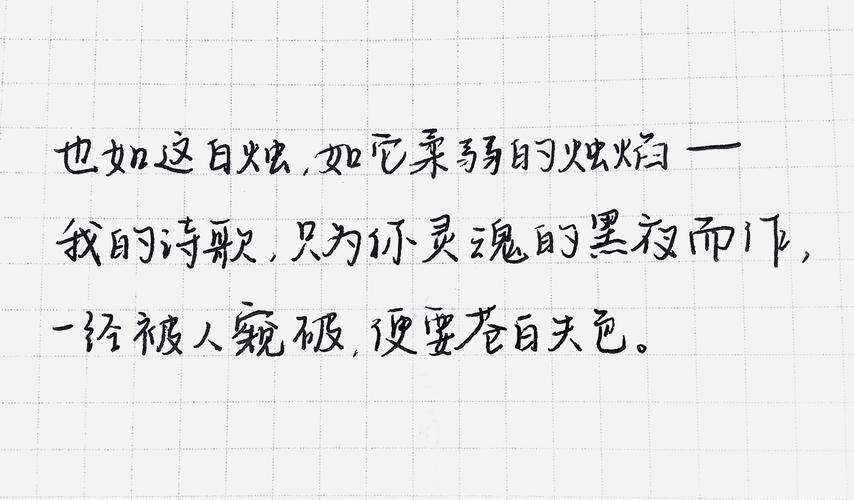 也如这白烛,如它柔弱的烛焰一
我的诗歌,只为你灵魂的黑夜而作,
一经被人窥破,便要苍白失色。